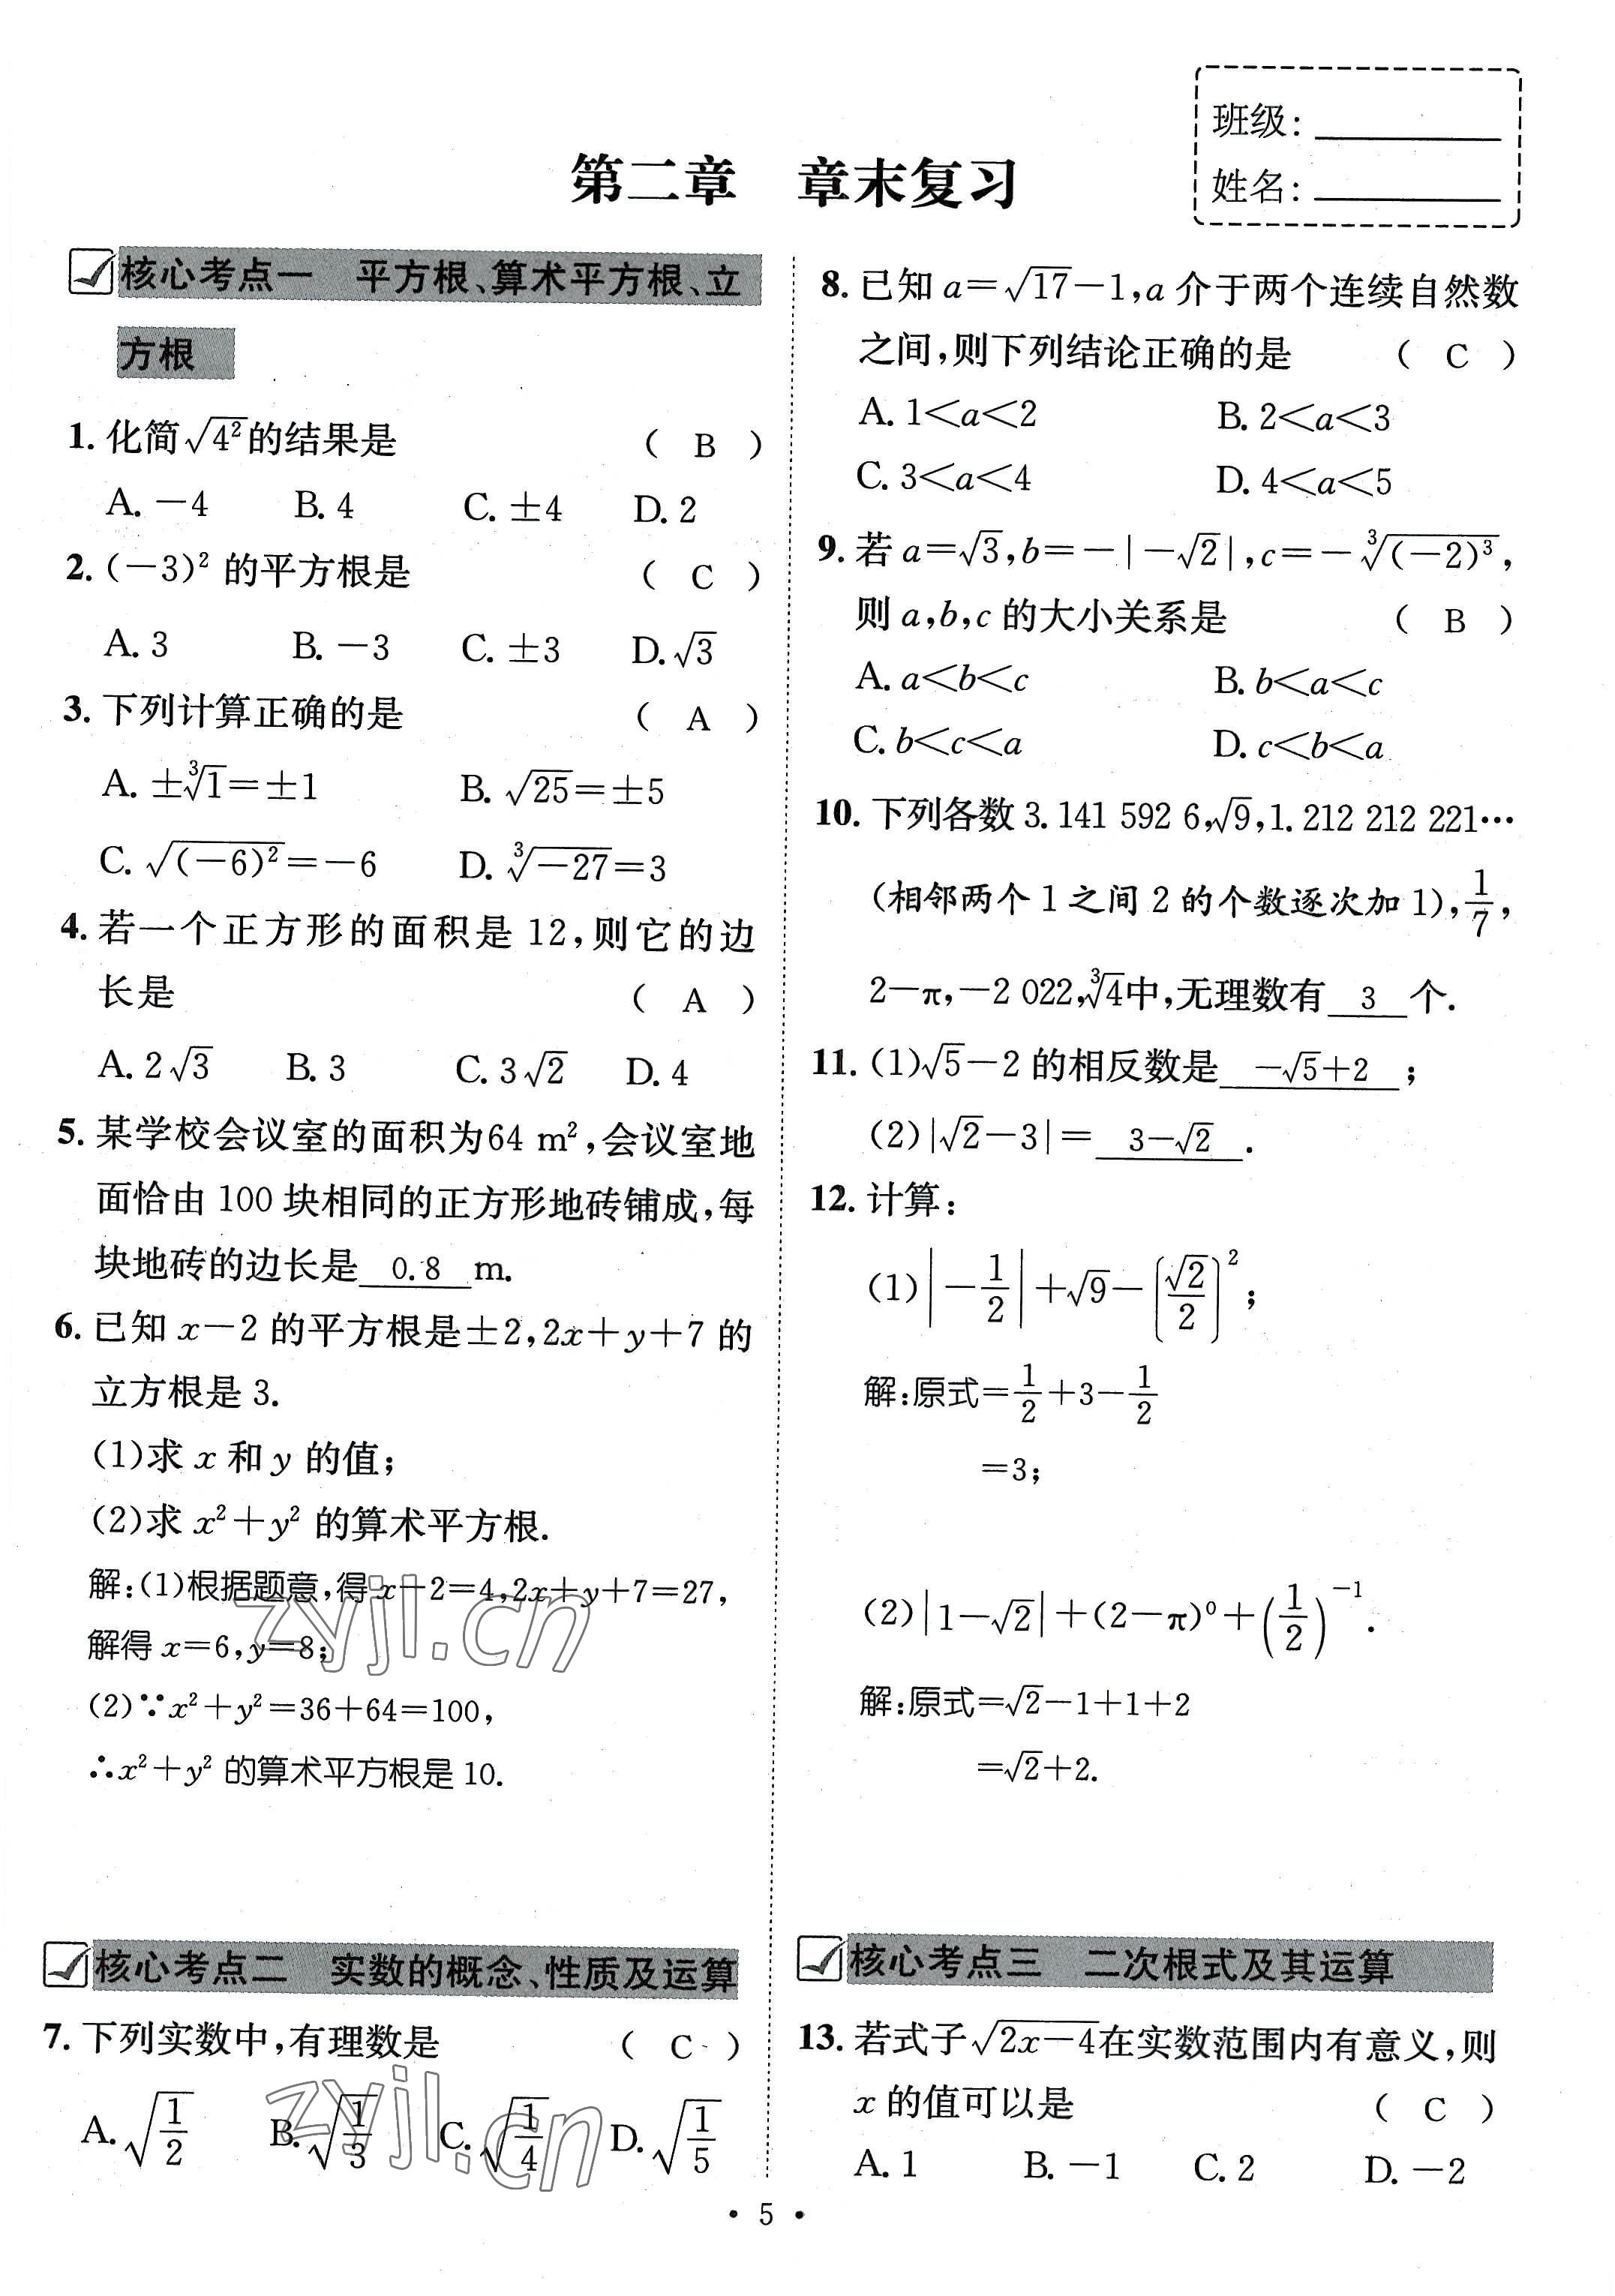 班级:
姓名:
第二章 章末复习
核心考点一 平方根、算术平方根、立
方根
1. 化简√4²的结果是 ( B )
A. －4 B. 4 C. ±4 D. 2
2. (－3)² 的平方根是 ( C )
A. 3 B. －3 C. ±3 D. √3
3. 下列计算正确的是 ( A )
A. ±∛1＝±1 B. √25＝±5
C. √(－6)²＝－6 D. ∛－27＝3
4. 若一个正方形的面积是 12,则它的边
长是 ( A )
A. 2√3 B. 3 C. 3√2 D. 4
5. 某学校会议室的面积为64 m²,会议室地
面恰由 100 块相同的正方形地砖铺成,每
块地砖的边长是 0.8 m.
6. 已知 x－2 的平方根是±2,2x＋y＋7 的
立方根是 3.
(1)求 x 和 y 的值;
(2)求 x²＋y² 的算术平方根.
解:(1)根据题意,得 x－2＝4,2x＋y＋7＝27,
解得 x＝6,y＝8;
(2)∵x²＋y²＝36＋64＝100,
∴x²＋y² 的算术平方根是 10.
核心考点二 实数的概念、性质及运算
7. 下列实数中,有理数是 ( C )
A. √(1/2) B. √(1/3) C. √(1/4) D. √(1/5)
8. 已知 a＝√17－1,a 介于两个连续自然数
之间,则下列结论正确的是 ( C )
A. 1＜a＜2 B. 2＜a＜3
C. 3＜a＜4 D. 4＜a＜5
9. 若 a＝√3,b＝－|－√2|,c＝－∛(－2)³,
则 a,b,c 的大小关系是 ( B )
A. a＜b＜c B. b＜a＜c
C. b＜c＜a D. c＜b＜a
10. 下列各数 3. 141 592 6,√9,1. 212 212 221…
(相邻两个 1 之间 2 的个数逐次加 1),1/7,
2－π,－2 022,∛4中,无理数有 3 个.
11. (1)√5－2 的相反数是 －√5＋2 ;
(2)|√2－3|＝ 3－√2 .
12. 计算:
(1)|－1/2|＋√9－(√2/2)²;
解:原式＝1/2＋3－1/2
＝3;
(2)|1－√2|＋(2－π)⁰＋(1/2)⁻¹.
解:原式＝√2－1＋1＋2
＝√2＋2.
核心考点三 二次根式及其运算
13. 若式子√2x－4在实数范围内有意义,则
x 的值可以是 ( C )
A. 1 B. －1 C. 2 D. －2
• 5 •
zyjl.cn
zyjl.cn